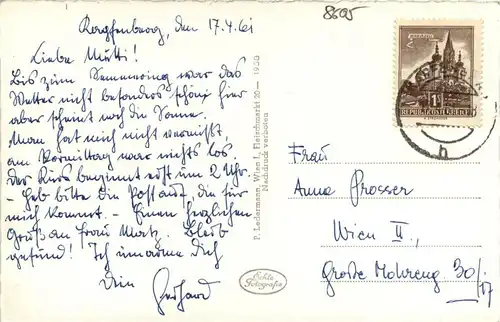 Kapfenberg, den 17.4.61
Liebe Mutti!
Bis zum Semmering war das
Wetter nicht besonders schön; hier
aber scheint noch die Sonne.
Man hat mich nicht vermißt,
am Vormittag war nichts los.
Der Kurs beginnt erst um 2 Uhr.
- Heb bitte die Post auf, die für
mich kommt. - Einen herzlichen
Gruß an Frau Matz. Bleib
gesund! Ich umarme Dich
Dein Gerhard
P. Ledermann, Wien I., Fleischmarkt 20 — 1930
Nachdruck verboten
Echte
Fotografie
8605
MARIAZELL
1 S
REPUBLIK ÖSTERREICH
h
Frau
Anna Prosser
Wien II.,
Große Mohreng. 30/17